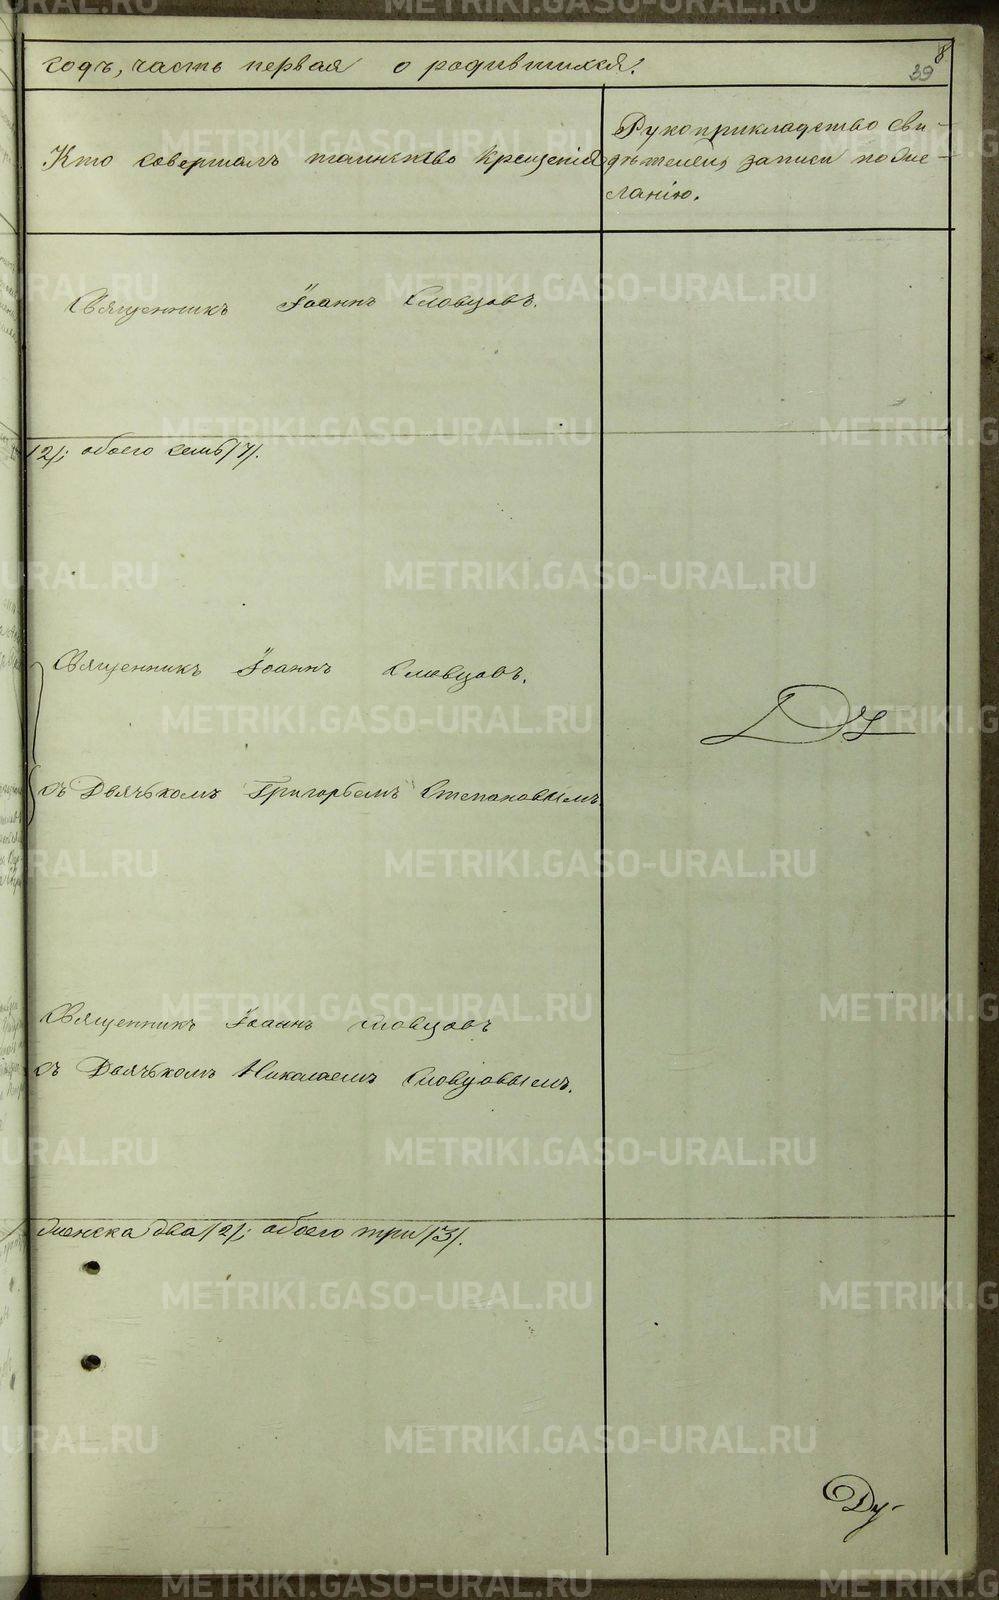 годъ, часть первая о родившихся.
8
39
Кто совершалъ таинство крещенія
Рукоприкладство сви-
дѣтелей записи по же-
ланію.
Священникъ Іоаннъ Словцовъ.
/2/; обоего семь /7/.
Священникъ Іоаннъ Словцовъ.
съ Дьячькомъ Григорьемъ Степановымъ.
Священникъ Іоаннъ Словцовъ
съ Дьячькомъ Николаемъ Словцовымъ.
женска два /2/; обоего три /3/.
Ду-
METRIKI.GASO-URAL.RU